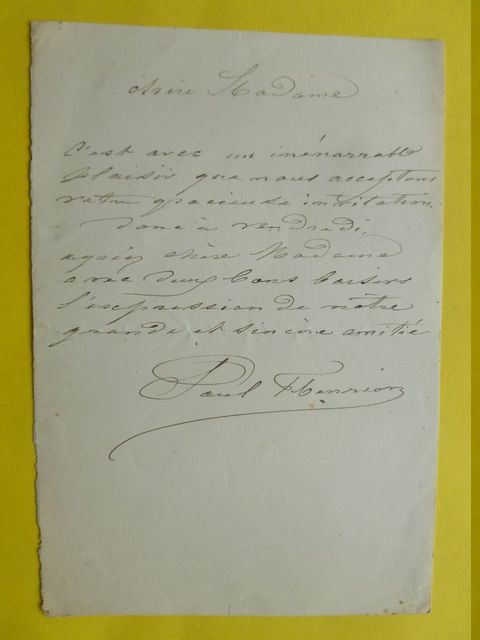 chère Madame
C'est avec un inénarrable
plaisir que nous acceptons
votre gracieuse invitation.
donc à vendredi,
agréez chère Madame
avec deux bons baisers
l'expression de notre
grande et sincère amitié
Paul Henrion